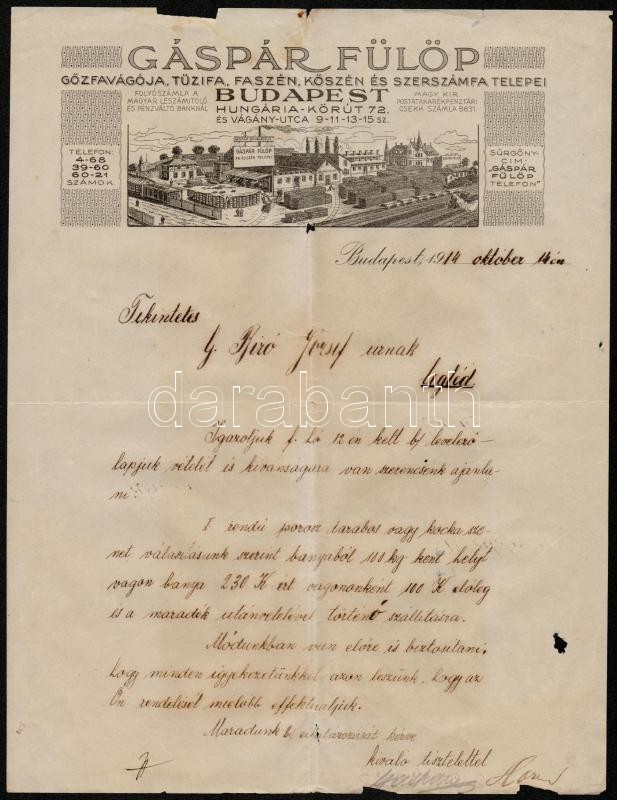 GÁSPÁR FÜLÖP
GŐZFAVÁGÓJA, TŰZIFA, FASZÉN, KŐSZÉN ÉS SZERSZÁMFA TELEPEI
FOLYÓSZÁMLA A
MAGYAR LESZÁMITOLÓ
ÉS PÉNZVÁLTÓ BANKNÁL
BUDAPEST
HUNGÁRIA-KÖRÚT 72.
ÉS VÁGÁNY-UTCA 9-11-13-15 SZ.
MAGY. KIR.
POSTATAKARÉKPÉNZTÁRI
CSEKK SZÁMLA 8631.
TELEFON:
4-68
39-60
60-21
SZÁMOK
GÁSPÁR FÜLÖP
SÜRGÖNY-
CIM:
„GÁSPÁR
FÜLÖP
TELEFON"
Budapest, 1914 október 14én
Tekintetes
G. Biró József urnak
Czegléd
darabanth
Igazoljuk f. hó 12 én kelt b. levelező-
lapjuk vételét és kivánságára van szerencsénk ajánla-
ni:
I rendü porosz darabos vagy kocka sze-
net választásunk szerint bányából 100 kg ként helyt
vagon banya 230 K ért vagononként 100 K előleg
és a maradék utánvételével történő szállitásra.
Módunkban van előre is biztositani,
hogy minden igyekezetünkkel azon leszünk, hogy az
Ön rendelését mielőbb effektuáljuk.
Maradunk b. elhatározását kérve
kiváló tisztelettel